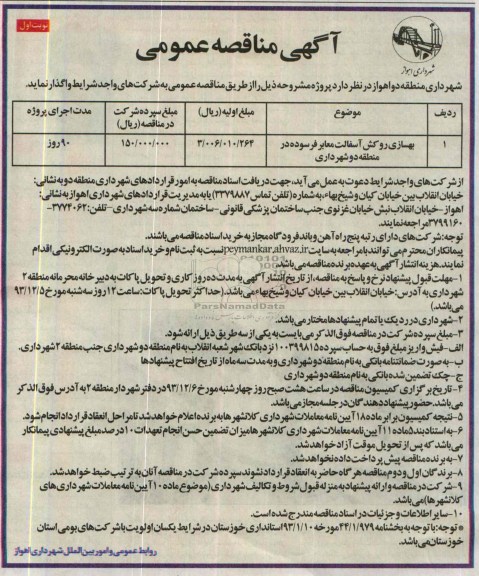 نوبت اول
آگهی مناقصه عمومی
شهرداری اهواز
شهرداری منطقه دو اهواز در نظر دارد پروژه مشروحه ذیل را از طریق مناقصه عمومی به شرکت های واجد شرایط واگذار نماید.
ردیف موضوع مبلغ اولیه (ریال) مبلغ سپرده شرکت در مناقصه (ریال) مدت اجرای پروژه
۱ بهسازی روکش آسفالت معابر فرسوده در منطقه دو شهرداری ۳/۰۰۶/۰۱۰/۲۶۴ ۱۵۰/۰۰۰/۰۰۰ ۹۰ روز
از شرکت های واجد شرایط دعوت به عمل می آید، جهت دریافت اسناد مناقصه به امور قراردادهای شهرداری منطقه دو به نشانی:
خیابان انقلاب بین خیابان کیان و شیخ بهاء، به شماره (تلفن تماس ۳۳۷۹۸۸۷) یا به مدیریت قراردادهای شهرداری اهواز به نشانی:
اهواز - خیابان انقلاب نبش خیابان غزنوی جنب ساختمان پزشکی قانونی - ساختمان شماره سه شهرداری - تلفن: ۳۷۷۴۰۶۲-
۳۷۹۹۱۶۰ مراجعه نمایند.
توجه: شرکت های دارای رتبه پنج راه آهن و باند فرودگاه مجاز به خرید اسناد مناقصه می باشند.
پیمانکاران محترم می توانند با مراجعه به سایت peymankar.ahvaz.ir نسبت به ثبت نام و خرید اسناد به صورت الکترونیکی اقدام
نمایند. هزینه انتشار آگهی به عهده برنده مناقصه می باشد.
۱- مهلت قبول پیشنهاد نرخ و پاسخ به مناقصه، از تاریخ انتشار آگهی به مدت ده روز کاری و تحویل پاکات به دبیرخانه محرمانه منطقه ۲
شهرداری به آدرس: خیابان انقلاب بین خیابان کیان و شیخ بهاء می باشد. (حداکثر تحویل پاکات: ساعت ۱۲ روز سه شنبه مورخ ۹۳/۱۲/۵
می باشد)
۲- شهرداری در رد یک یا تمام پیشنهادها مختار می باشد.
۳- مبلغ سپرده شرکت در مناقصه فوق الذکر می بایست به یکی از سه طریق ذیل ارائه شود.
الف- فیش واریز مبلغ فوق به حساب سپرده ۱۰۰۳۹۹۸۱۵ نزد بانک شهر شعبه انقلاب به نام منطقه دو شهرداری جنب منطقه ۲ شهرداری.
ب- به صورت ضمانتنامه بانکی به نام منطقه دو شهرداری و به مدت سه ماه از تاریخ افتتاح پیشنهادها
ج- چک تضمین شده بانکی به نام منطقه دو شهرداری
۴- تاریخ برگزاری کمیسیون مناقصه در ساعت هشت صبح روز چهارشنبه مورخ ۹۳/۱۲/۶ در دفتر شهردار منطقه ۲ به آدرس فوق الذکر
می باشد. حضور پیشنهاد دهندگان در جلسه مجاز می باشد.
۵- نتیجه کمیسیون برابر ماده ۱۸ آیین نامه معاملات شهرداری کلانشهرها به برنده اعلام خواهد شد تا مراحل انعقاد قرارداد انجام شود.
۶- به استناد بند ۵ ماده ۱۱ آیین نامه معاملات شهرداری کلانشهرها میزان تضمین حسن انجام تعهدات ۱۰ درصد مبلغ پیشنهادی پیمانکار
می باشد که پس از تحویل موقت آزاد خواهد شد.
۷- به برنده مناقصه پیش پرداخت داده نخواهد شد.
۸- برندگان اول و دوم مناقصه هرگاه حاضر به انعقاد قرارداد نشوند سپرده شرکت در مناقصه آنان به ترتیب ضبط خواهد شد.
۹- شرکت در مناقصه و ارائه پیشنهاد به منزله قبول شروط و تکالیف شهرداری (موضوع ماده ۱۰ آیین نامه معاملات شهرداری های
کلانشهرها) می باشد.
۱۰- سایر اطلاعات و جزئیات در اسناد مناقصه مندرج شده است.
* توجه: با توجه به بخشنامه ۴۴/۱/۹۷۹ مورخه ۹۳/۱/۱۰ استانداری خوزستان در شرایط یکسان اولویت با شرکت های بومی استان
خوزستان می باشد.
روابط عمومی و امور بین الملل شهرداری اهواز
ParsNamadData